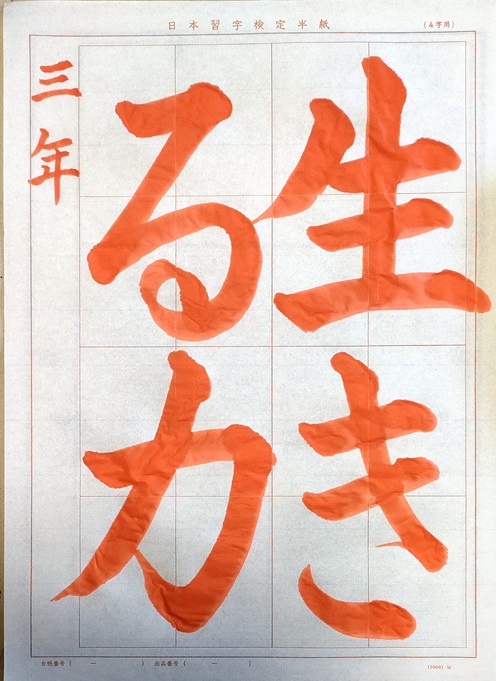 日本習字検定半紙
(4字用)
生き
る力
三年
台帳番号( ー ) 出品番号( ー )